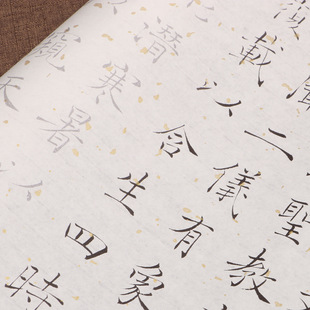 聖教
二儀有象
載以含生四時
潛寒暑以
天